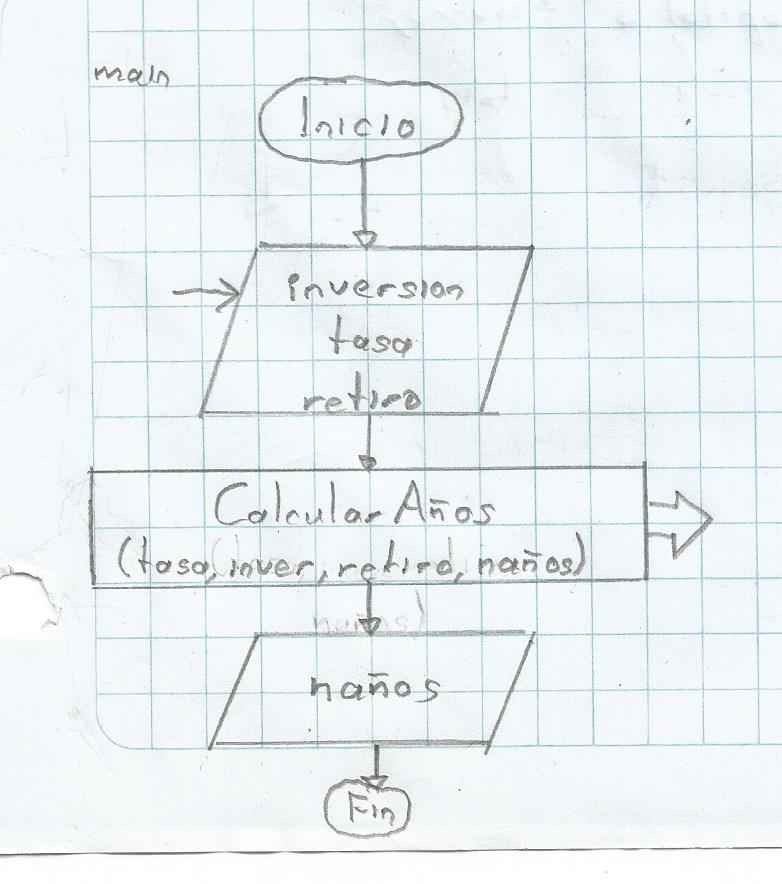 main
Inicio
inversion
tasa
retiro
Calcular Años
(tasa, inver, retiro, naños)
naños
Fin